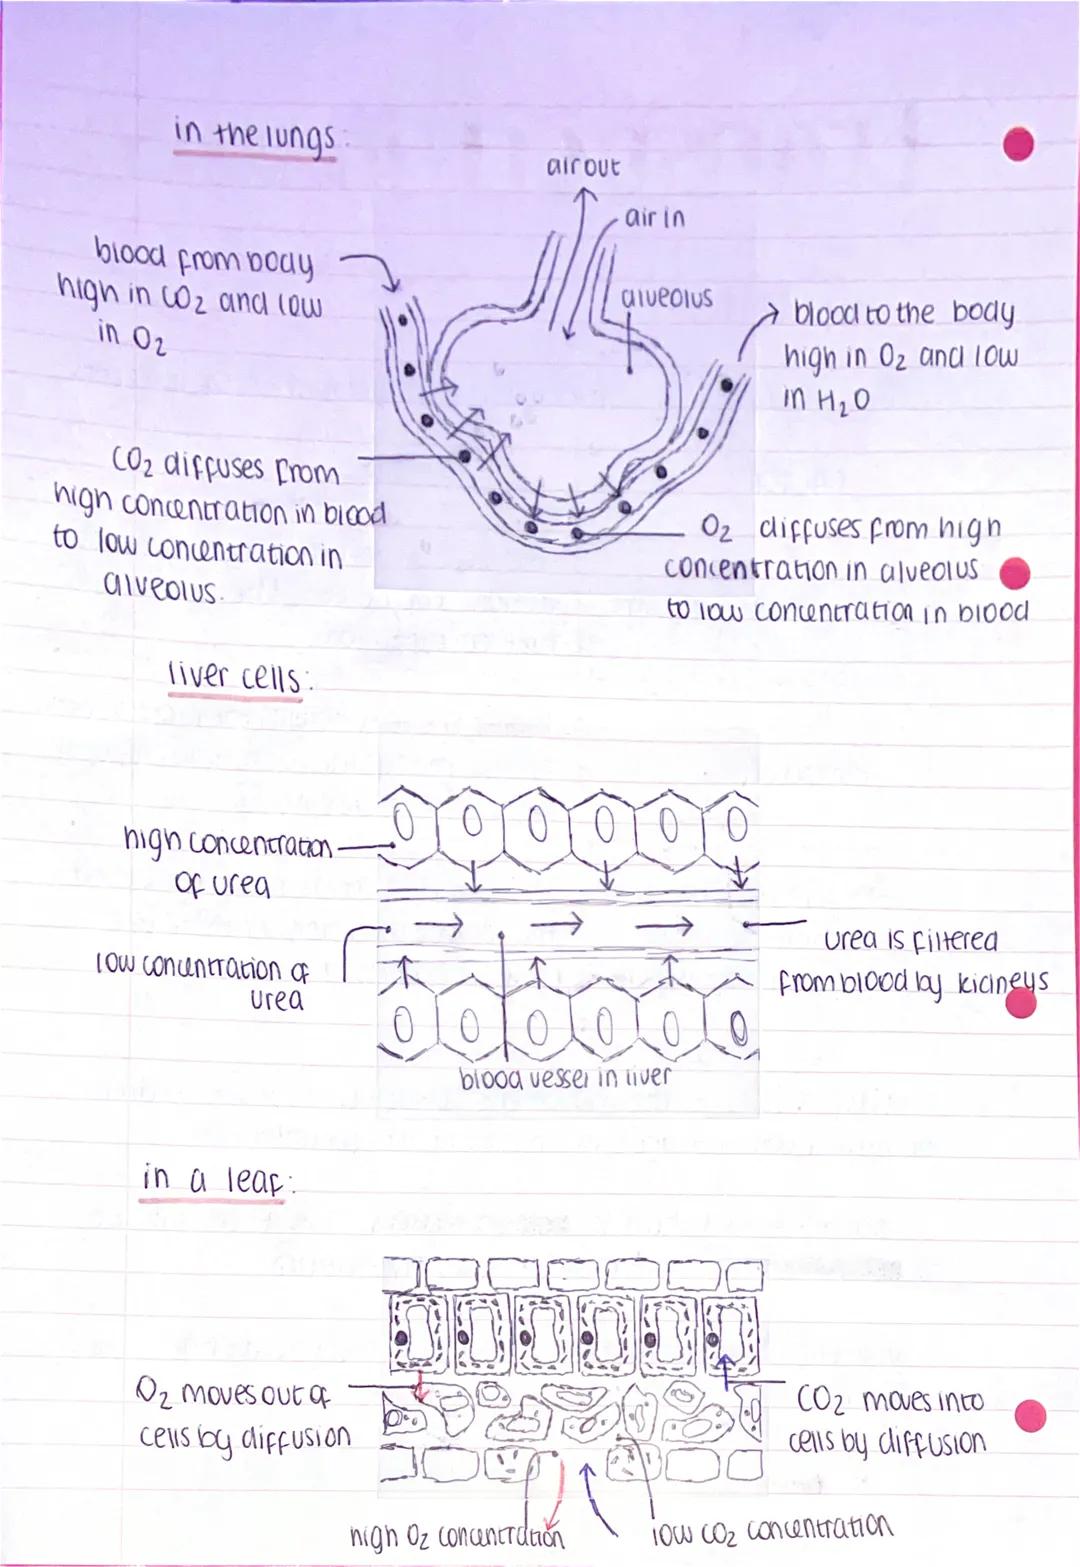 in the lungs:
air out
air in
blood from body
high in CO2 and low
in O2
alveolus
blood to the body
high in O2 and low
in H2O
CO2 diffuses from
high concentration in blood
to low concentration in
alveolus.
O2 diffuses from high
concentration in alveolus
to low concentration in blood
liver cells:
high concentration
of urea
low concentration of
urea
urea is filtered
from blood by kidneys
blood vessel in liver
in a leaf:
O2 moves out of
cells by diffusion
CO2 moves into
cells by diffusion
high O2 concentration
low CO2 concentration